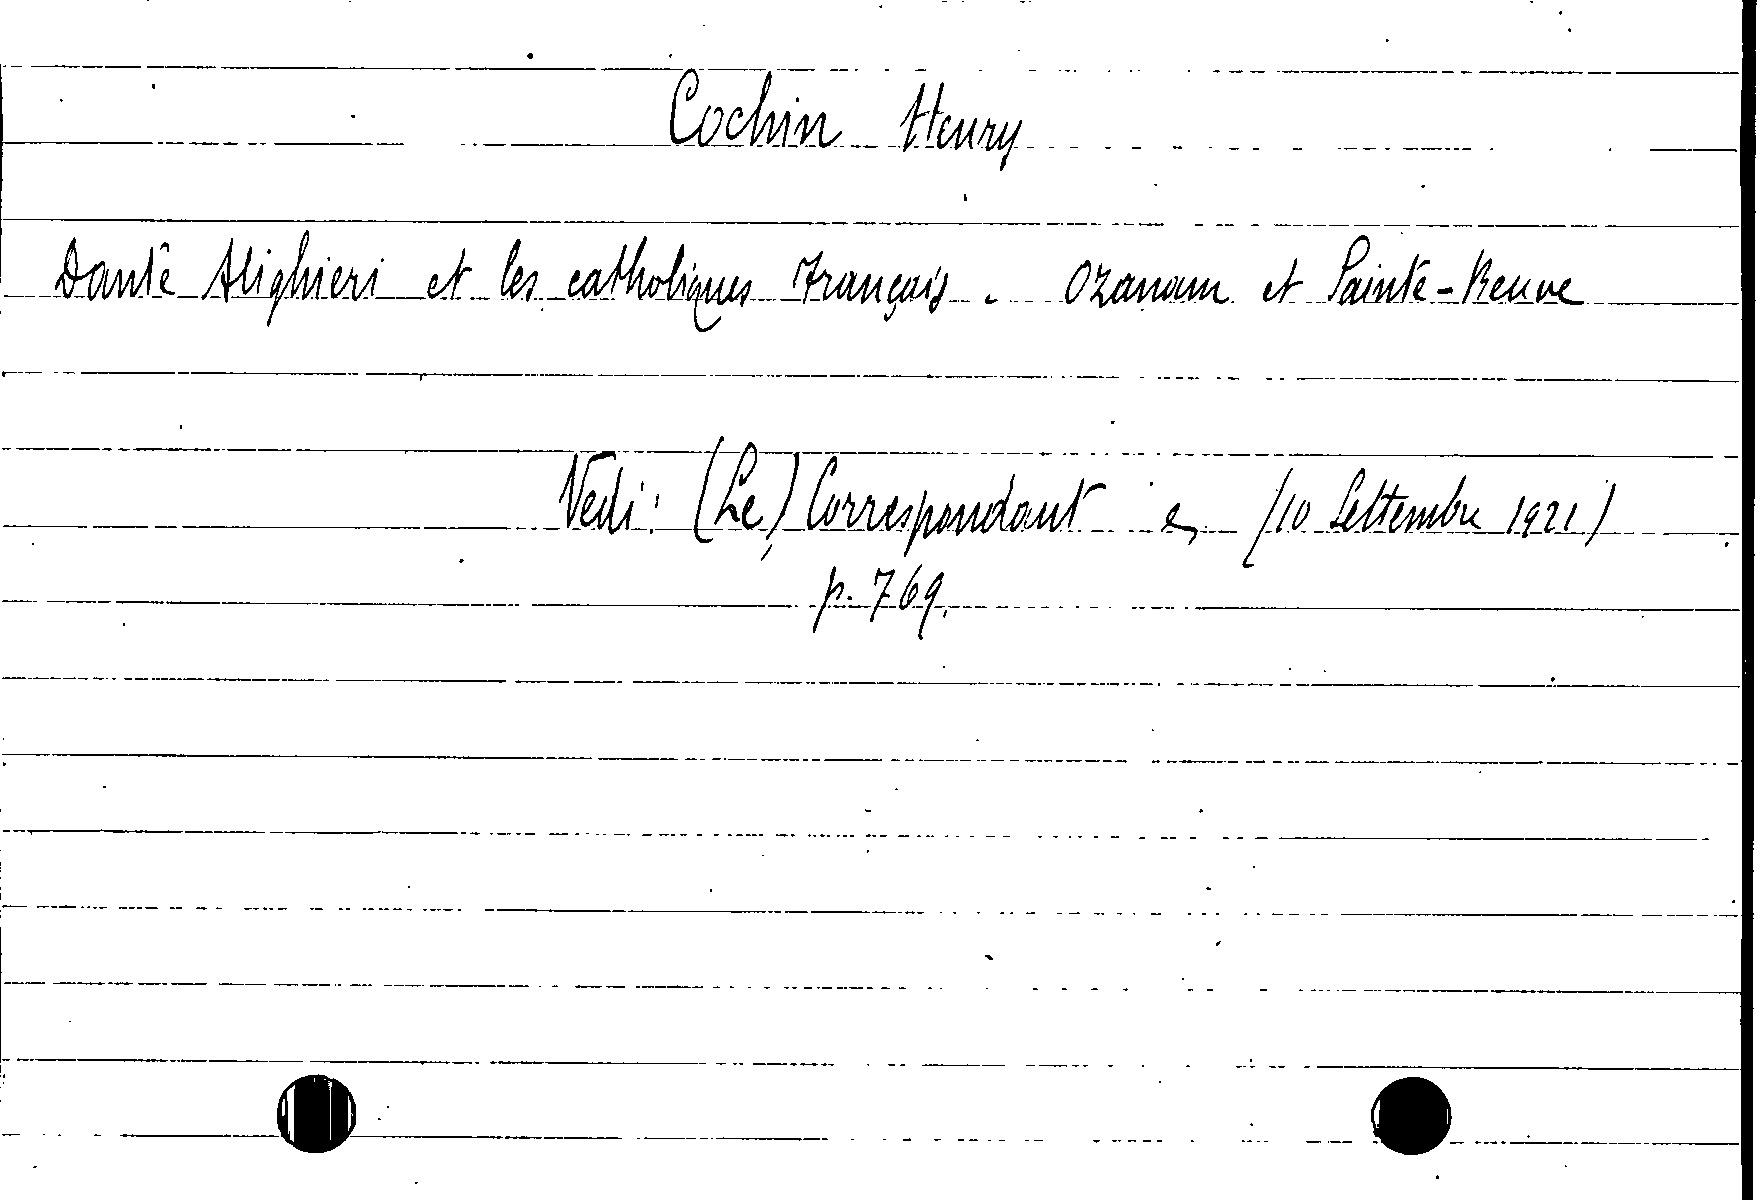 Cochin Henry
Dante Alighieri et les catholiques français. Ozanam et Sainte-Beuve
Vedi: (Le) Correspondant (10 Settembre 1921)
p. 769.